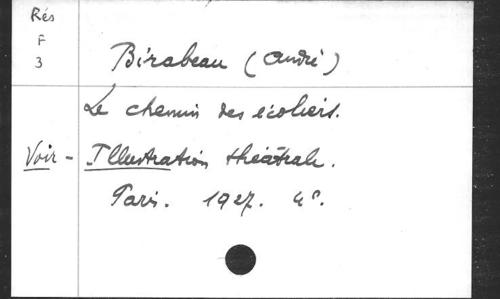 Rés
F
3
Birabeau (André)
Le chemin des écoliers.
Voir - Illustration théâtrale.
Paris. 1927. 4°.